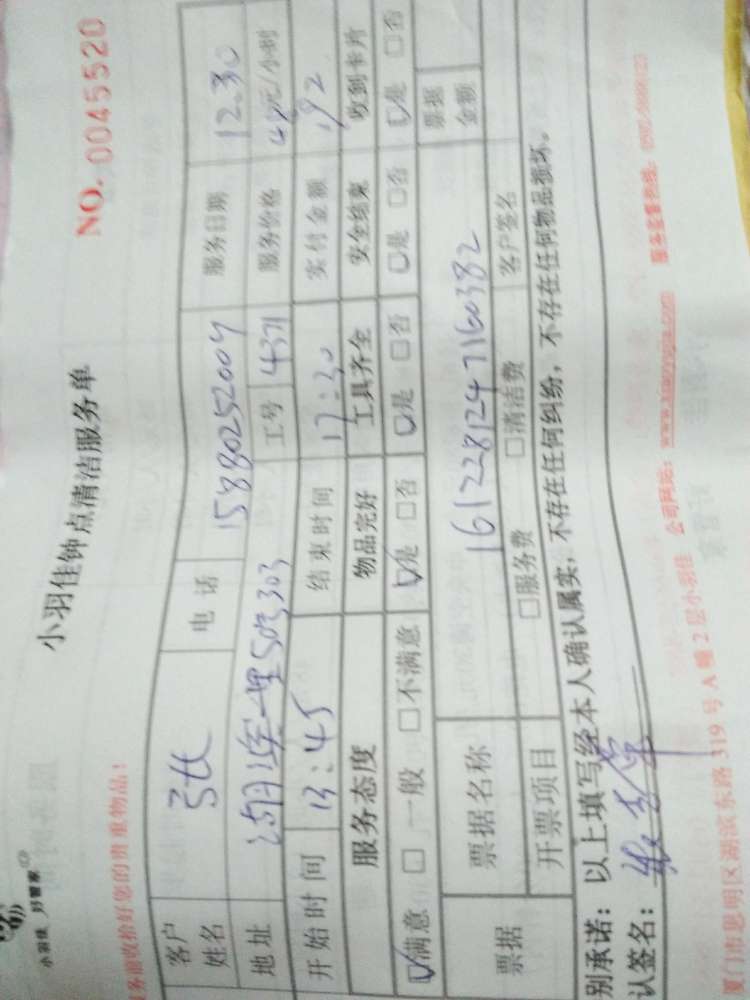 小羽佳 好管家
小羽佳钟点清洁服务单
NO. 0045520
服务前收拾好您的贵重物品！
客户姓名 电话 15880252004 服务日期 12.30
地址 503303 工号 4371 服务价格 元/小时
开始时间 13:45 结束时间 17:30 实付金额 192
服务态度 物品完好 工具齐全 安全结束 收到卡片
☑满意 □一般 □不满意 ☑是 □否 ☑是 □否 ☑是 □否 ☑是 □否
票据 票据名称 1612281247160382 票据金额
开票项目 □服务费 □清洁费 客户签名
别承诺：以上填写经本人确认属实，不存在任何纠纷，不存在任何物品损坏。
认签名：
厦门市思明区湖滨东路319号A幢2层小羽佳 公司网站：www.xiaoyujia.com 服务监督热线：